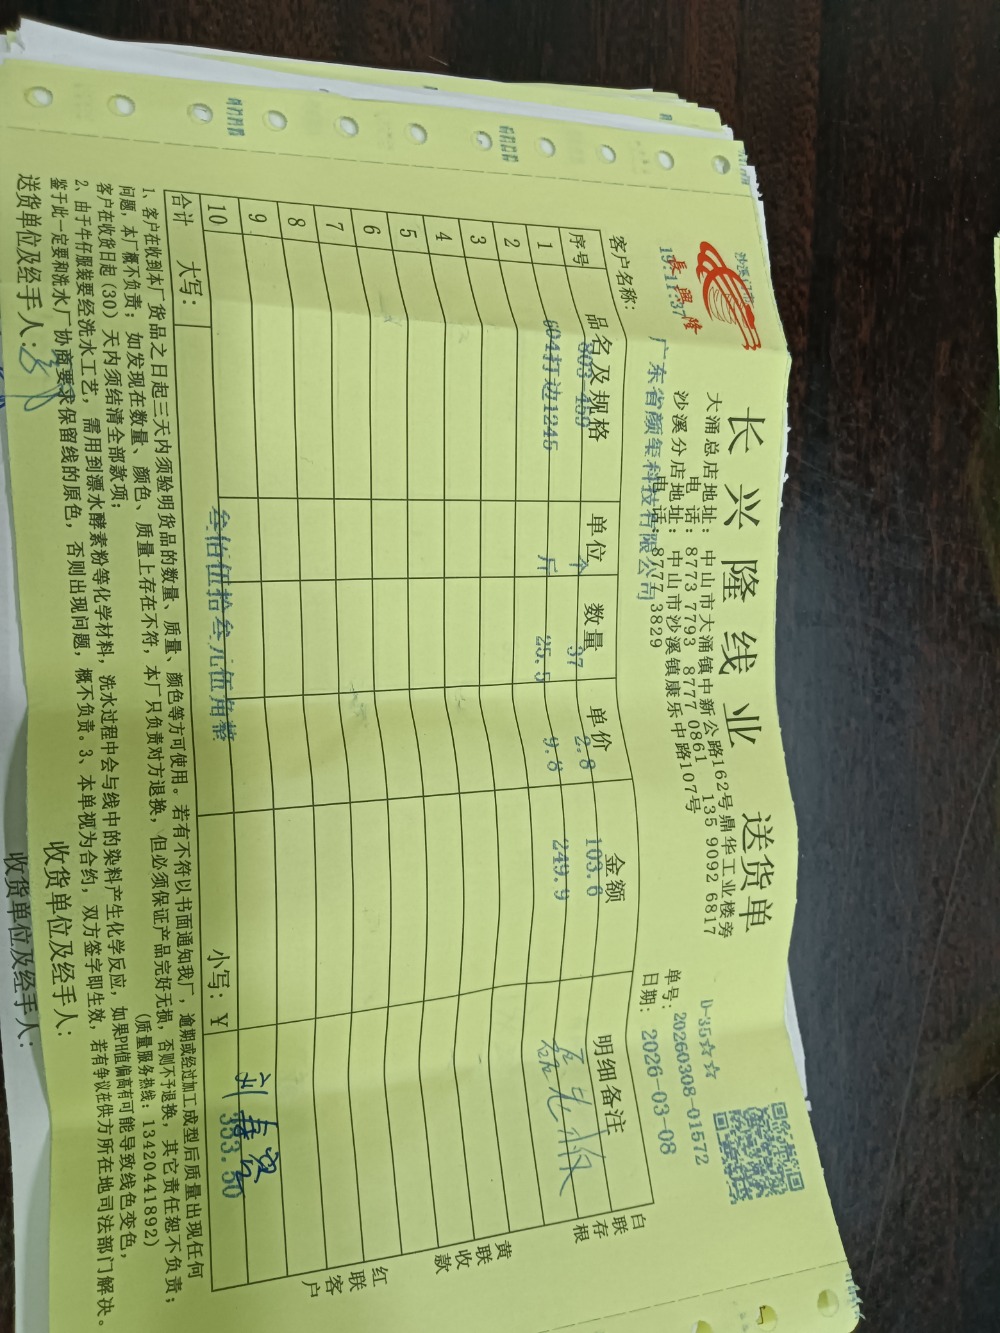 长兴隆线业 送货单
長興隆
19:11:37
大涌总店地址：中山市大涌镇中新公路162号鼎华工业楼旁
电 话：8773 7793 8777 0861 135 9092 6817
沙溪分店地址：中山市沙溪镇康乐中路107号
电 话：8777 3829
D-35☆☆☆
单号：20260308-01572
日期：2026-03-08
客户名称：广东省颜玺科技有限公司
序号 品名及规格 单位 数量 单价 金额 明细备注
803-459 个 37 2.8 103.6
1 604打边1245 斤 25.5 9.8 249.9
2
3
4
5
6
7
8
9
10
合计 大写：叁佰伍拾叁元伍角整 小写：¥ 353.50
白联存根
黄联收款
红联客户
1、客户在收到本厂货品之日起三天内须验明货品的数量、质量、颜色等方可使用。若有不符以书面通知我厂，逾期或经过加工成型后质量出现任何
问题，本厂概不负责；如发现在数量、颜色、质量上存在不符，本厂只负责对方退换，但必须保证产品完好无损，否则不予退换，其它责任恕不负责；
客户在收货日起（30）天内须结清全部款项； （质量服务热线：13420441892）
2、由于牛仔服装要经洗水工艺，需用到漂水酵素粉等化学材料，洗水过程中会与线中的染料产生化学反应，如果PH值偏高有可能导致线色变色，
鉴于此一定要和洗水厂协商要求保留线的原色，否则出现问题，概不负责。3、本单视为合约，双方签字即生效，若有争议在供方所在地司法部门解决。
送货单位及经手人： 收货单位及经手人：
收货单位及经手人：